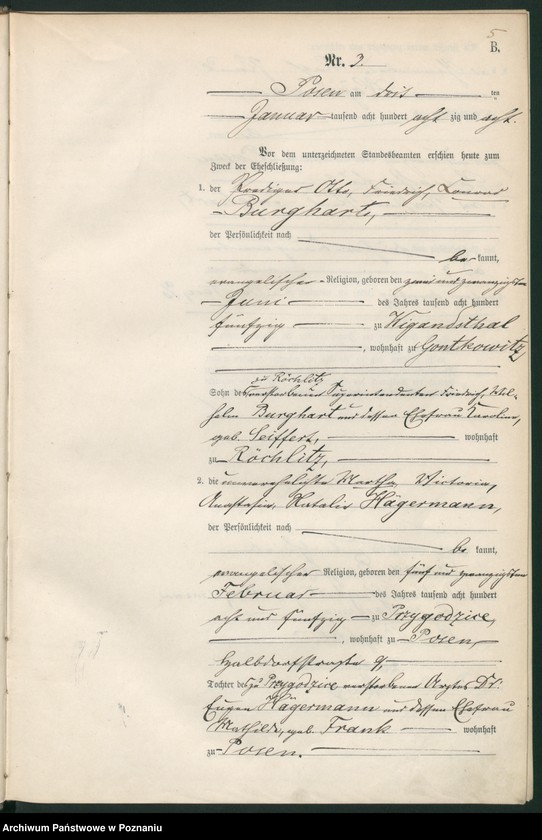 5
B.
Nr. 3.
Posen am drei ten
Januar tausend acht hundert acht zig und acht.
Vor dem unterzeichneten Standesbeamten erschien heute zum
Zweck der Eheschließung:
1. der Prediger Otto, Friedrich, Konrad
Burghart,
der Persönlichkeit nach
be kannt,
evangelischer Religion, geboren den zwei und zwanzigsten
Juni des Jahres tausend acht hundert
fünfzig zu Wigandsthal
, wohnhaft zu Gontkowitz
zu Röchlitz
Sohn des verstorbenen Superintendenten Friedrich, Wil-
helm Burghart und dessen Ehefrau Karoline,
geb. Seiffert, wohnhaft
zu Röchlitz,
2. die unverehelichte Martha, Victoria,
Anastasia, Natalie Hägermann,
der Persönlichkeit nach
be kannt,
evangelischer Religion, geboren den fünf und zwanzigsten
Februar des Jahres tausend acht hundert
acht und fünfzig zu Przygodzice,
, wohnhaft zu Posen,
Halbdorfstraße 9,
Tochter des zu Przygodzice verstorbenen Arztes Dr.
Eugen Hägermann und dessen Ehefrau
Mathilde, geb. Frank wohnhaft
zu Posen.
Archiwum Państwowe w Poznaniu